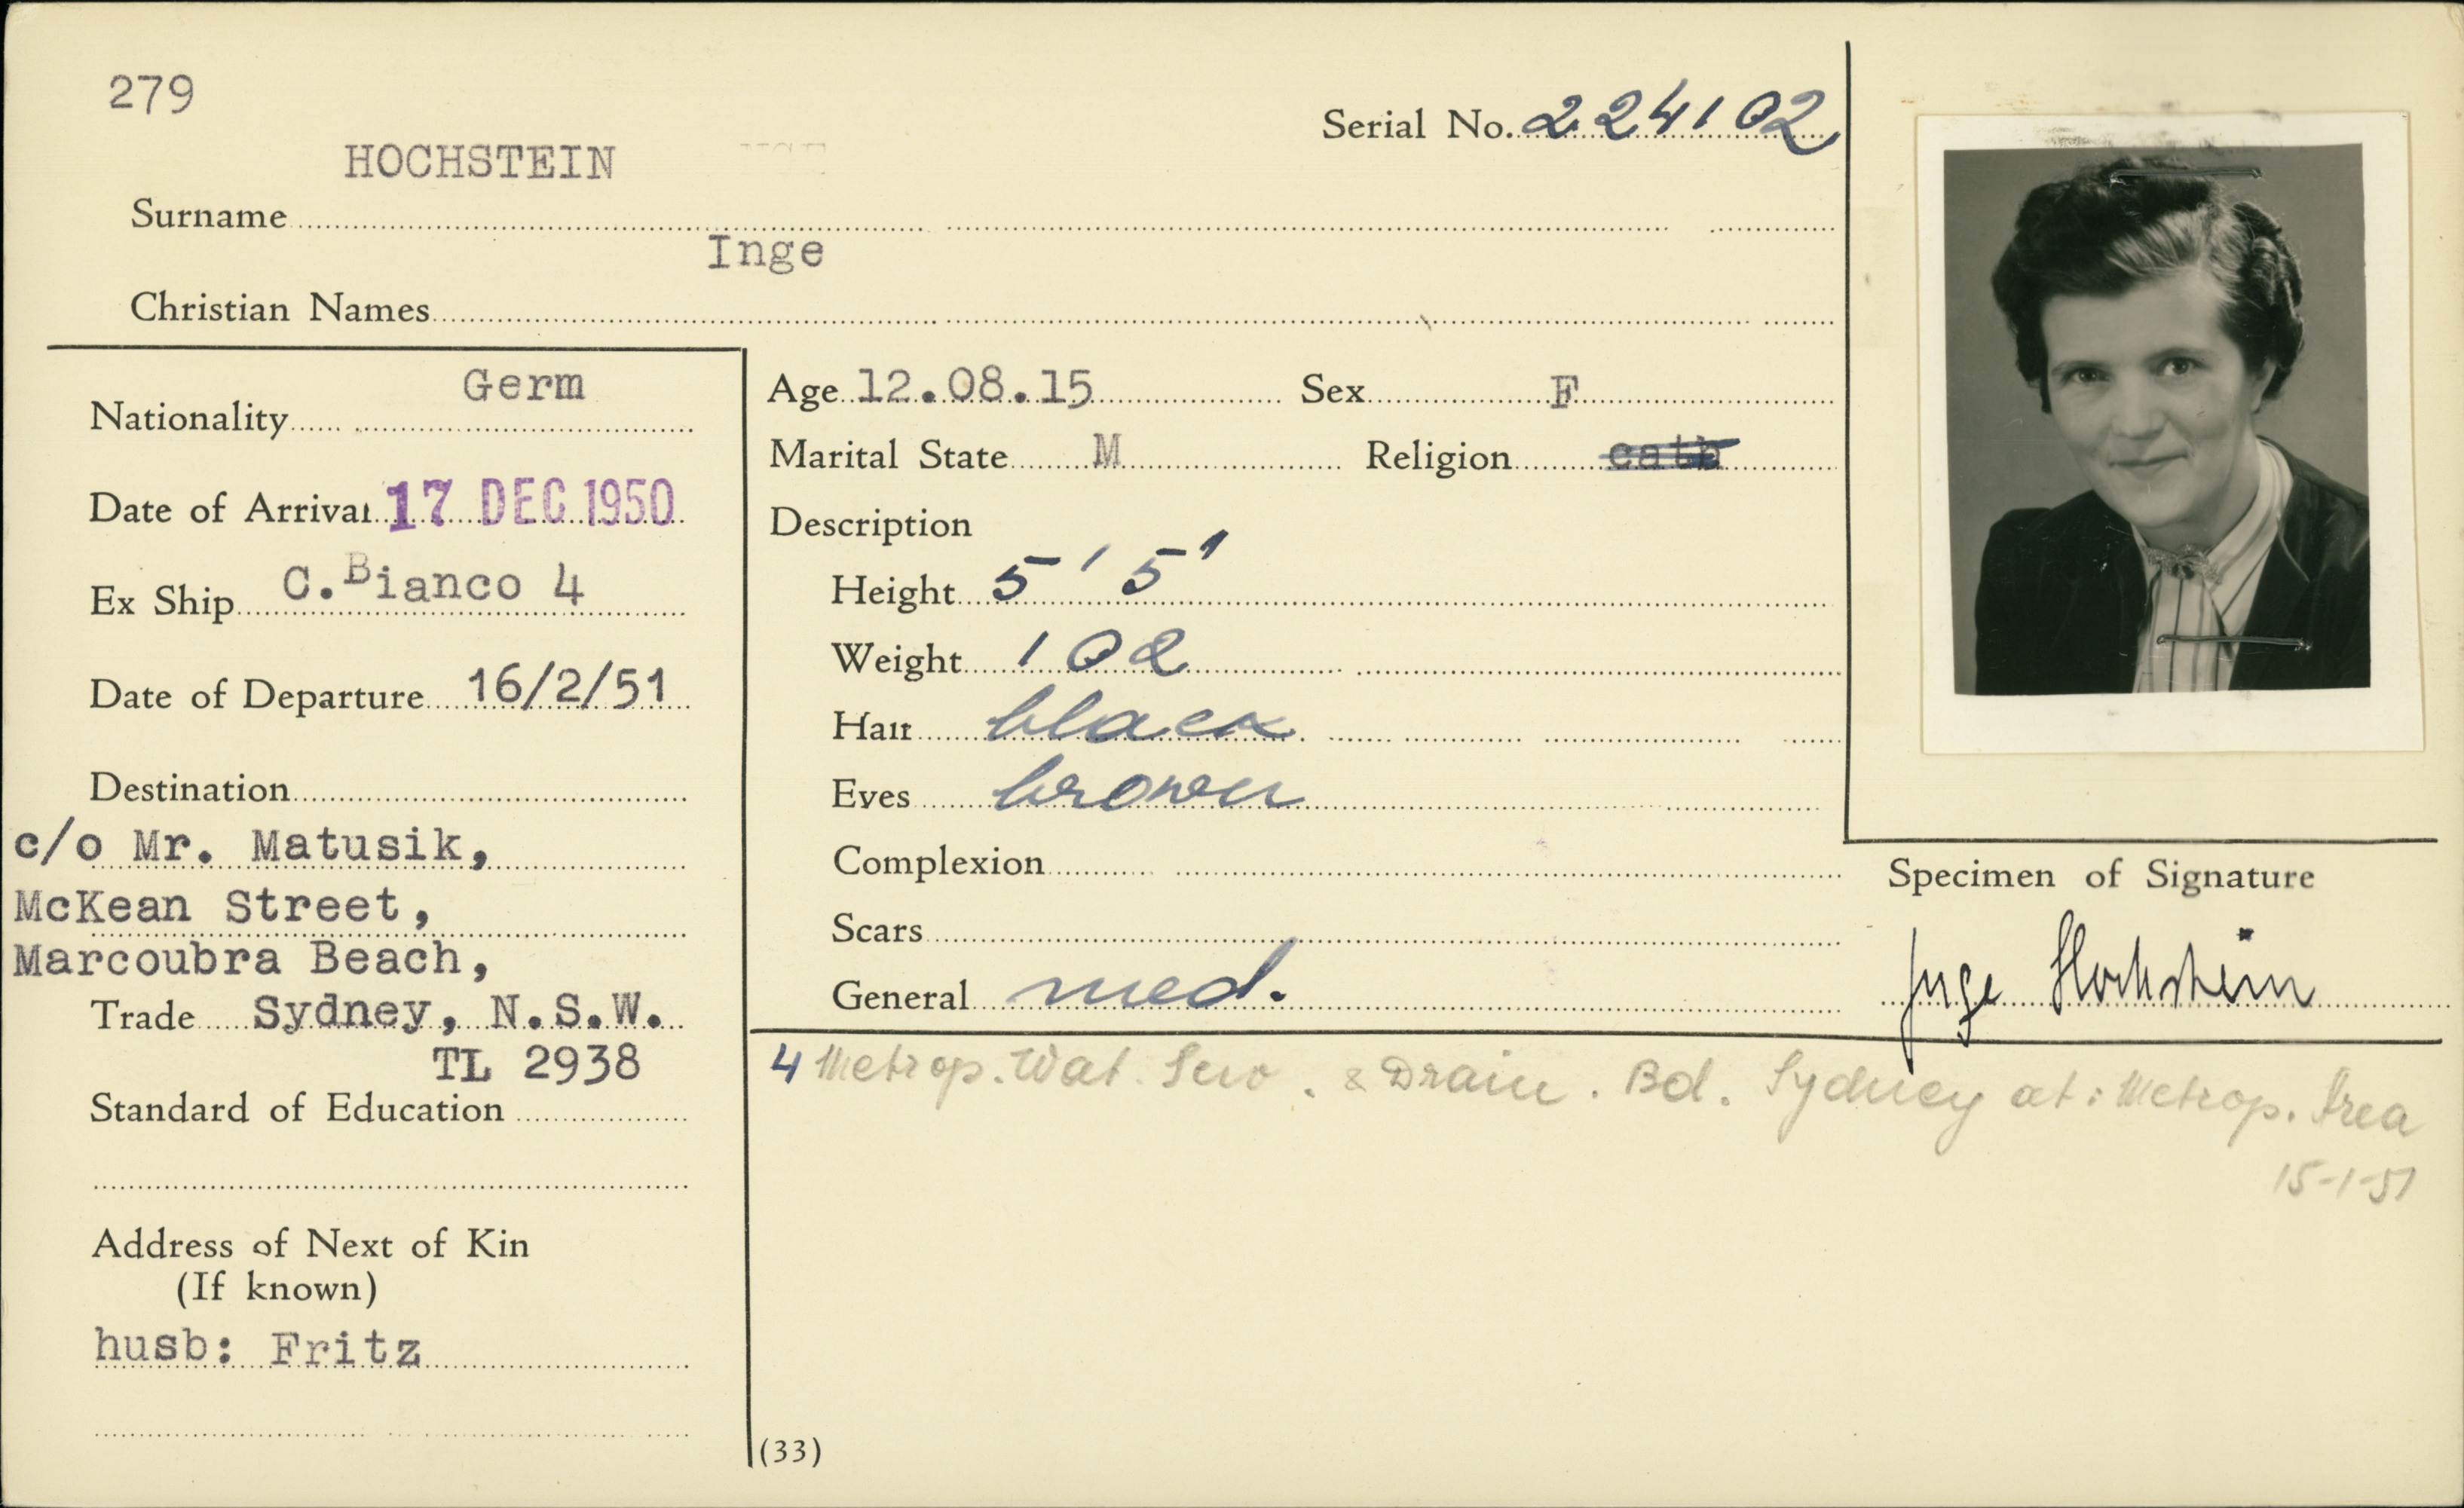 279
Serial No. 224102
HOCHSTEIN
Surname
Inge
Christian Names
Germ
Nationality
Date of Arrival 17 DEC 1950
Ex Ship C.Bianco 4
Date of Departure 16/2/51
Destination
c/o Mr. Matusik,
McKean Street,
Marcoubra Beach,
Trade Sydney, N.S.W.
TL 2938
Standard of Education
Address of Next of Kin
(If known)
husb: Fritz
Age 12.08.15 Sex F
Marital State M Religion cath
Description
Height 5' 5'
Weight 102
Hair black
Eyes brown
Complexion
Scars
General med.
Specimen of Signature
Inge Hochstein
4 Metrop. Wat. Sew. & Drain. Bd. Sydney at: Metrop. Area
15-1-51
(33)